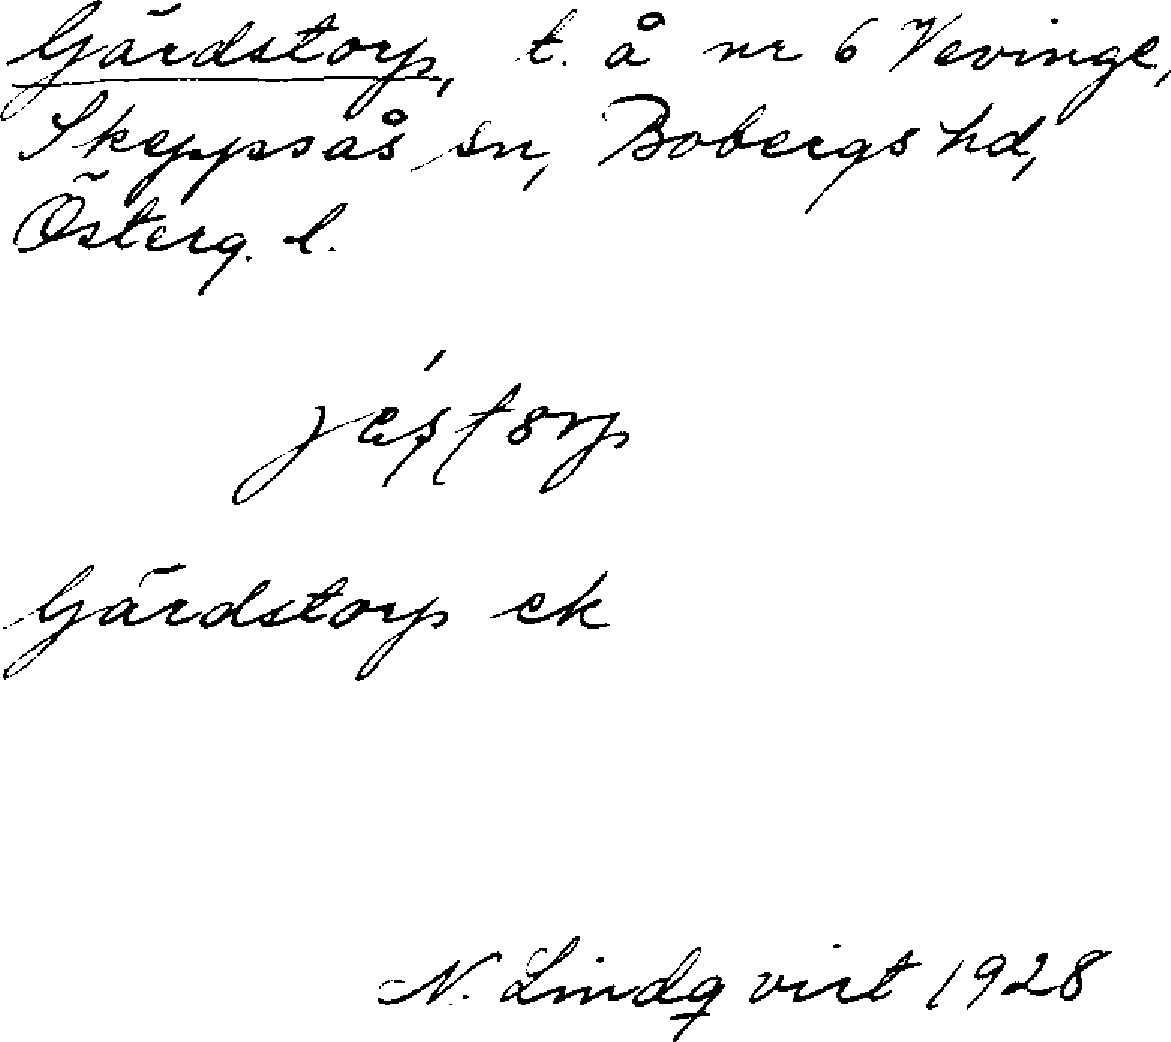 Gärdstorp, t. å nr 6 Vevinge,
Skeppsås sn, Bobergs hd,
Österg. l.
Gärdstorp ek
N. Lindqvist 1928